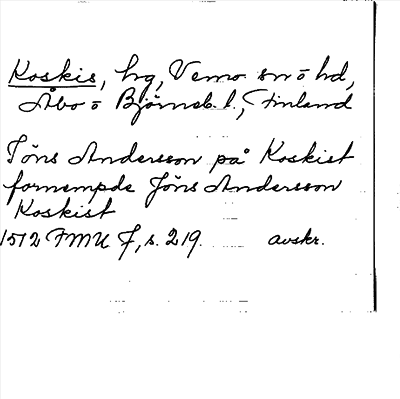 Koskis, hg, Vemo sn o hd,
Åbo o Björneb. l., Finland
Jöns Andersson på Koskist
fornempde Jöns Andersson
Koskist
1512 FMU 7, s. 219. avskr.